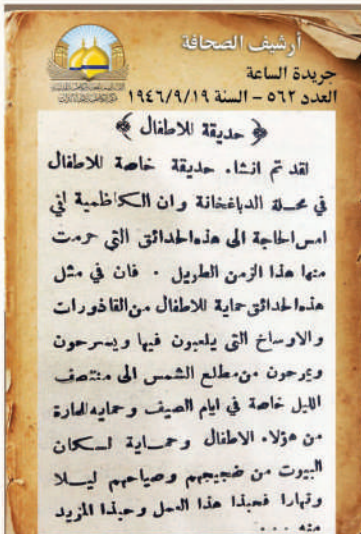 أرشيف الصحافة
جريدة الساعة
العدد ٥٦٢ – السنة ١٩٤٦/٩/١٩
﴿ حديقة للاطفال ﴾
لقد تم انشاء حديقة خاصة للاطفال
في محلة الدباغخانة وان الكاظمية لفي
امس الحاجة الى هذه الحدائق التي حرمت
منها هذا الزمن الطويل . فان في مثل
هذه الحدائق حماية للاطفال من القاذورات
والاوساخ التي يلعبون فيها ويسرحون
ويمرحون من مطلع الشمس الى منتصف
الليل خاصة في ايام الصيف وحمايه للمارة
من هؤلاء الاطفال وحماية لسكان
البيوت من ضجيجهم وصياحهم ليلا
ونهارا فحبذا هذا العمل وحبذا المزيد
منه ...